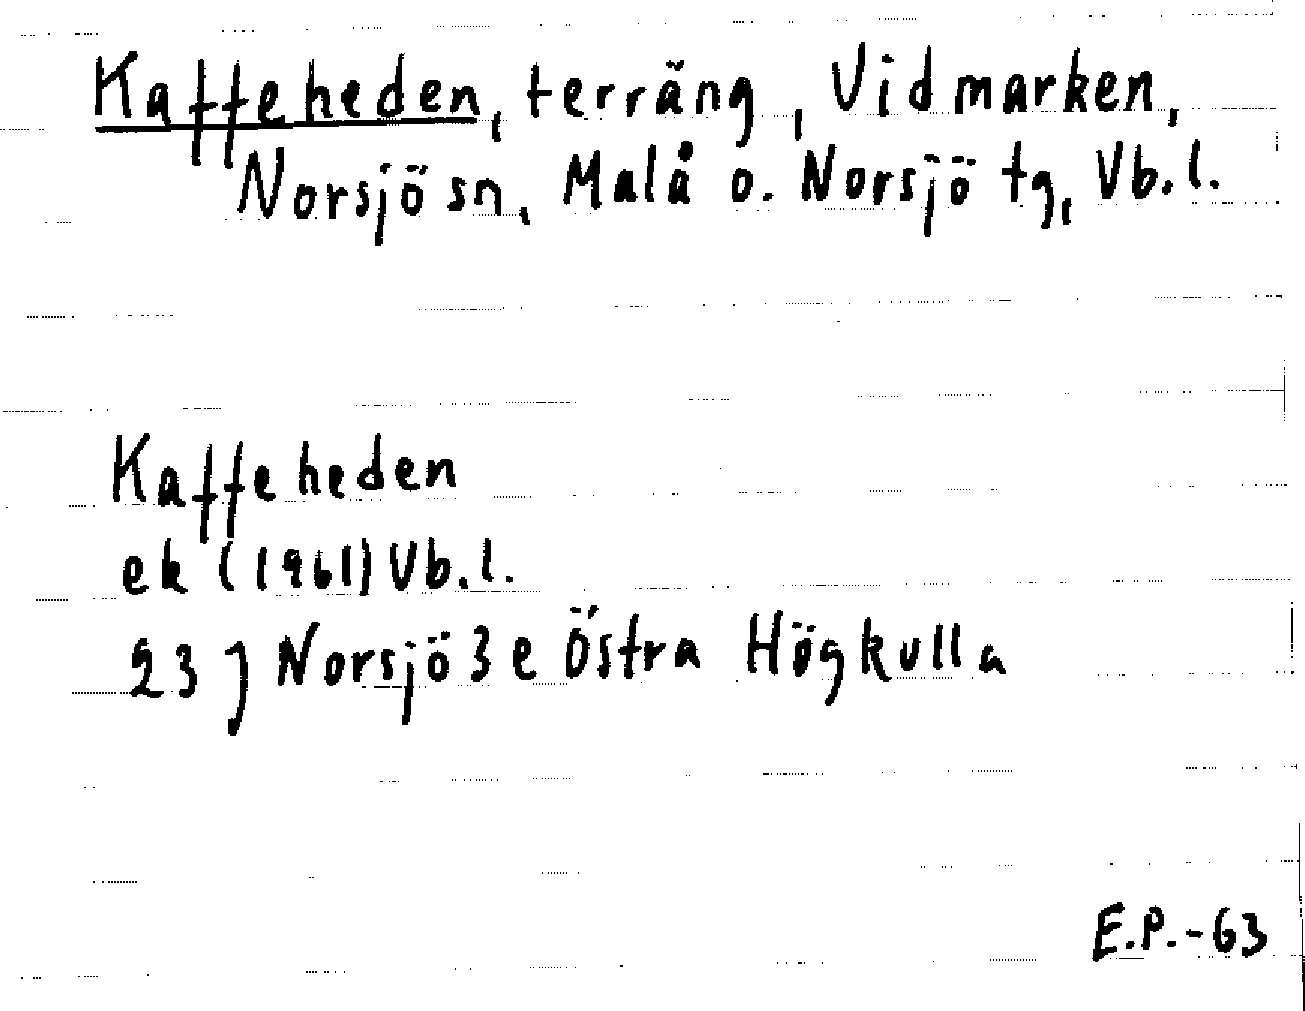 Kaffeheden, terräng, Vidmarken,
Norsjö sn, Malå o. Norsjö tg, Vb.l.
Kaffeheden
ek (1961) Vb.l.
23 J Norsjö 3 e Östra Högkulla
E.P.-63